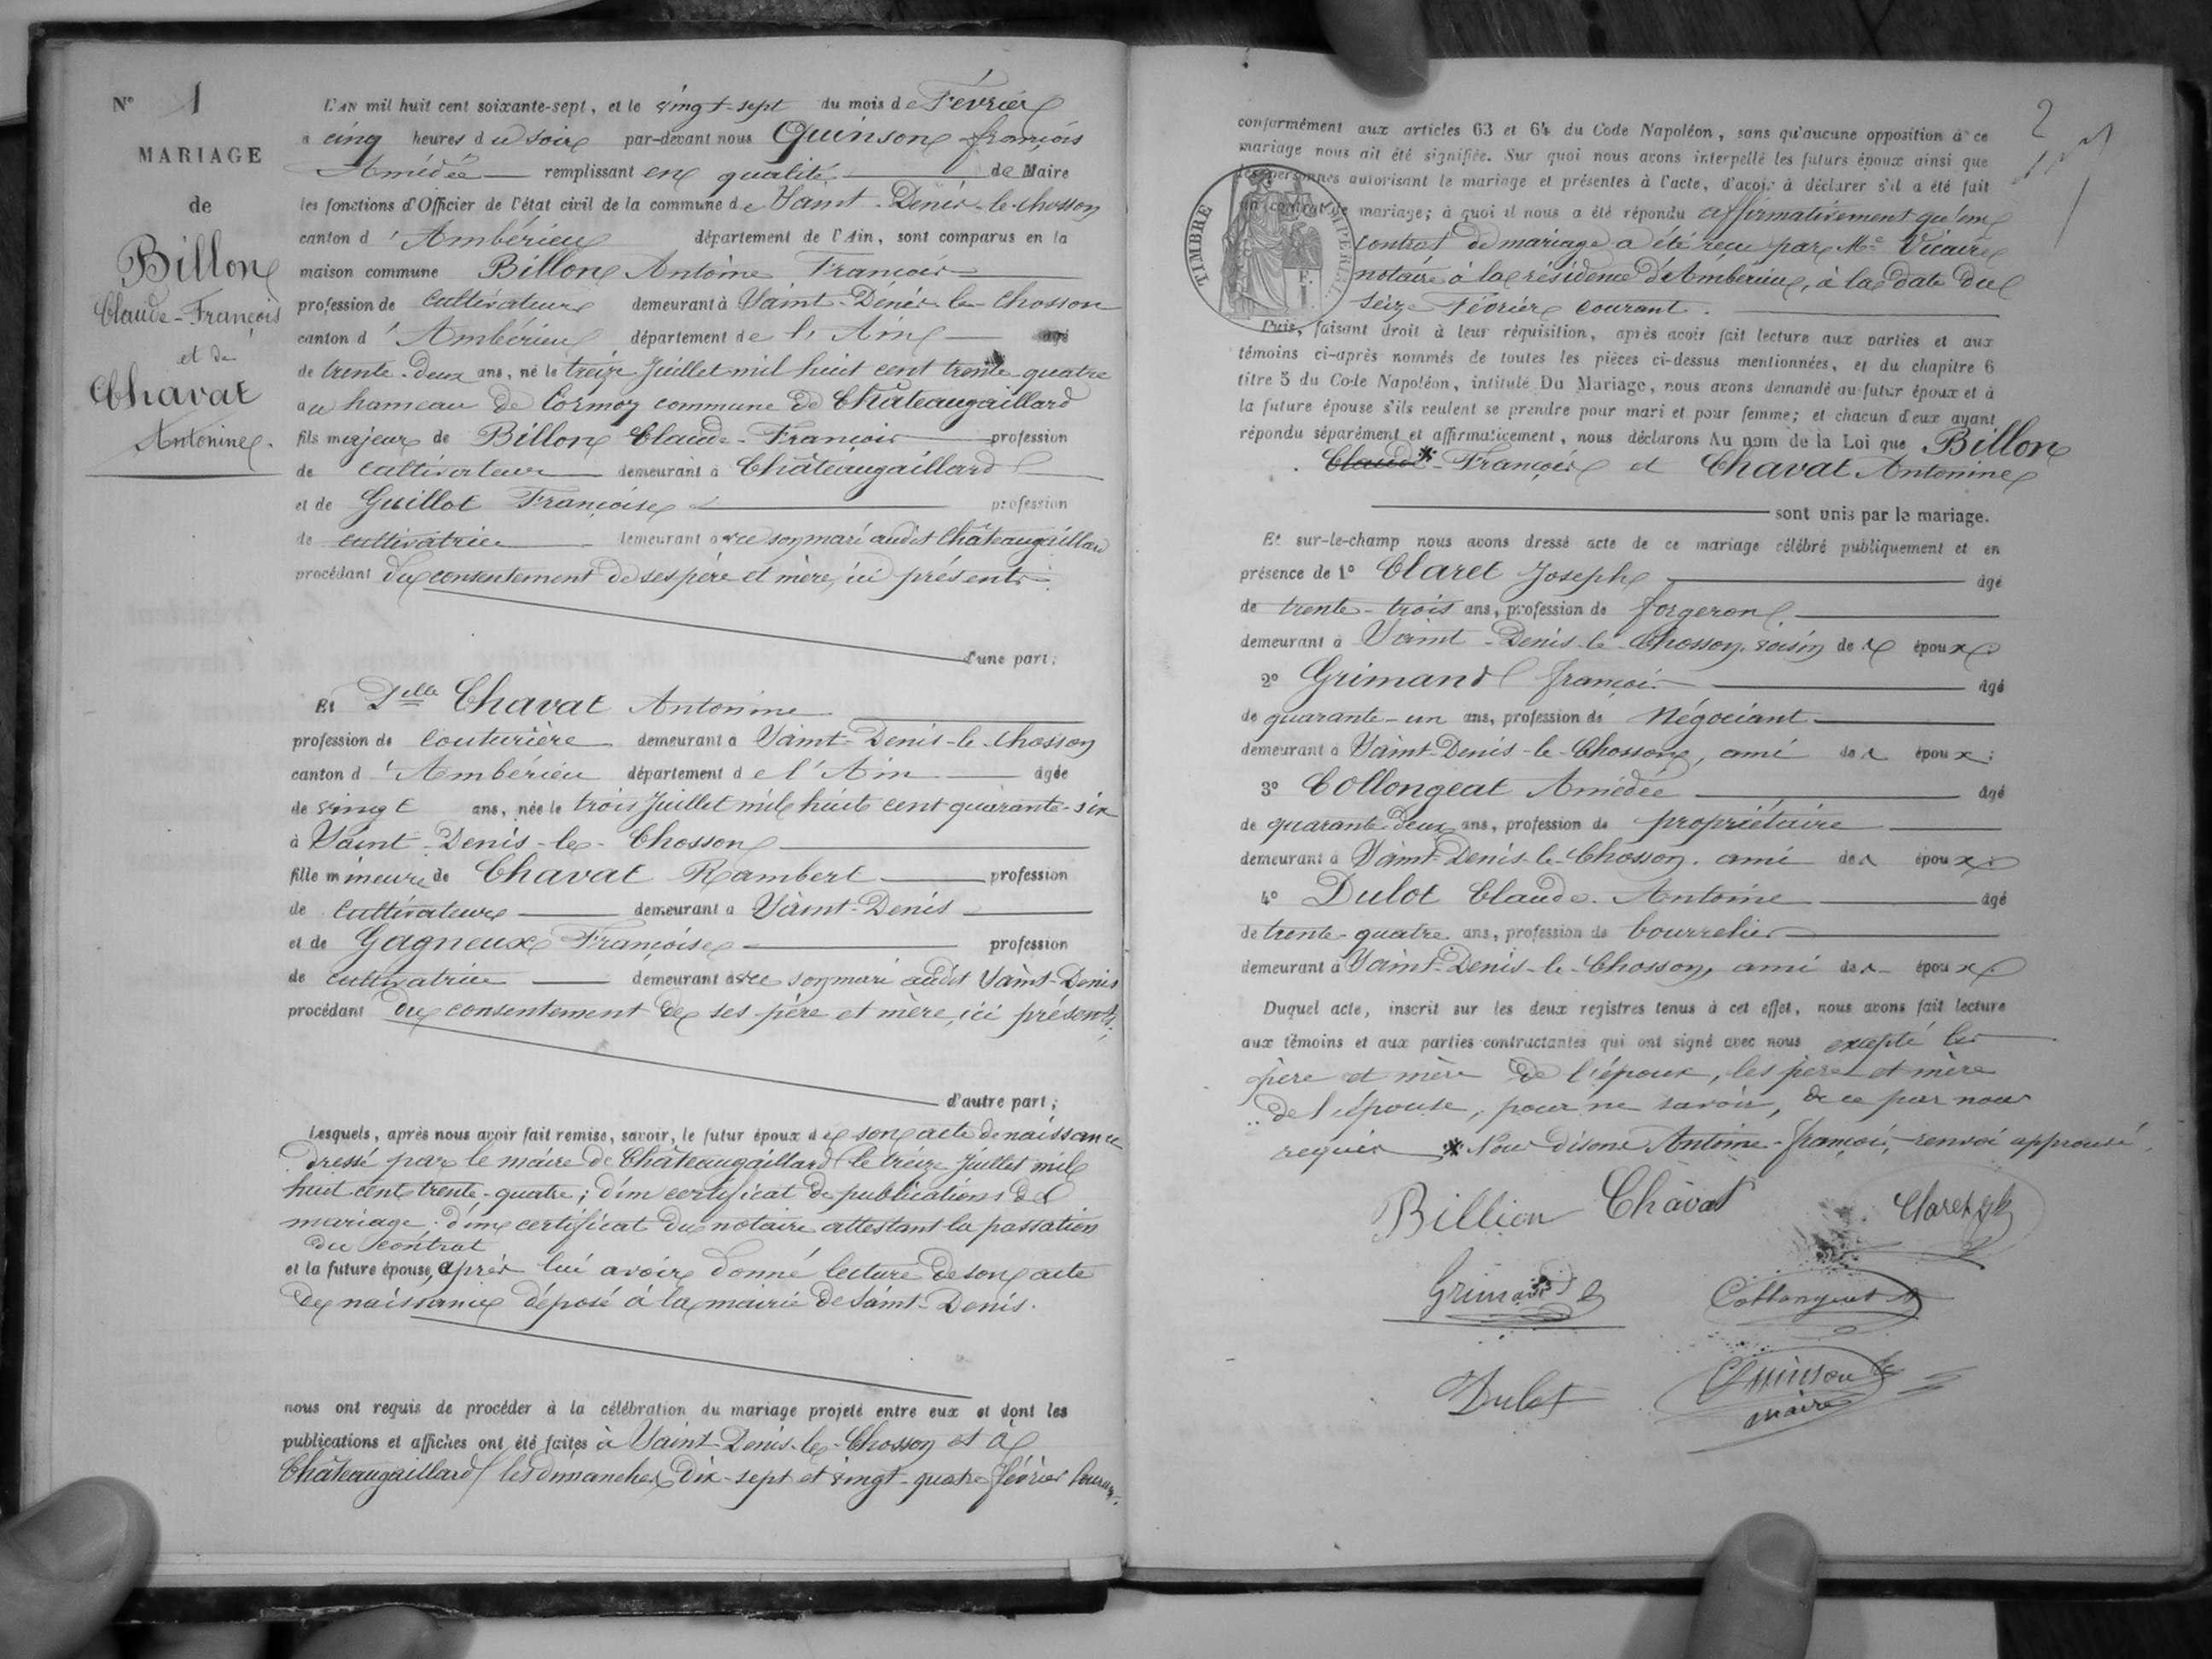 N° 1
MARIAGE
de
Billon
Claude-François
et de
Chavat
Antonine.
L'AN mil huit cent soixante-sept, et le vingt-sept du mois de Février
à cinq heures du soir par-devant nous Quinson françois
Amédée remplissant en qualité de Maire
les fonctions d'Officier de l'état civil de la commune de Saint-Denis-le-Chosson
canton d'Ambérieu département de l'Ain, sont comparus en la
maison commune Billon Antoine François
profession de cultivateur demeurant à Saint-Dénis-le-Chosson
canton d'Ambérieu département de l'Ain âgé
de trente-deux ans, né le treize Juillet mil huit cent trente-quatre
au hameau de Cormoz commune de Châteaugaillard
fils majeur de Billon Claude-François profession
de cultivateur demeurant à Châteaugaillard
et de Guillot Françoise profession
de cultivatrice demeurant avec son mari audit Châteaugaillard
procédant du consentement de ses père et mère, ici présents.
d'une part;
Et Delle Chavat Antonine
profession de couturière demeurant à Saint-Denis-le-Chosson
canton d'Ambérieu département de l'Ain âgée
de vingt ans, née le trois Juillet mil huit cent quarante-six
à Saint-Denis-le-Chosson
fille mineure de Chavat Rambert profession
de cultivateur demeurant à Saint-Denis
et de Gagneux Françoise profession
de cultivatrice demeurant avec son mari audit Saint-Denis
procédant du consentement de ses père et mère, ici présents.
d'autre part;
Lesquels, après nous avoir fait remise, savoir, le futur époux de son acte de naissance
dressé par le maire de Châteaugaillard le treize Juillet mil
huit cent trente-quatre; d'un certificat de publications de
mariage. d'un certificat du notaire attestant la passation
du contrat
et la future épouse, après lui avoir donné lecture de son acte
de naissance déposé à la mairie de Saint-Denis.
nous ont requis de procéder à la célébration du mariage projeté entre eux et dont les
publications et affiches ont été faites à Saint-Denis-le-Chosson et à
Châteaugaillard les dimanches dix-sept et vingt-quatre février courant.
2
conformément aux articles 63 et 64 du Code Napoléon, sans qu'aucune opposition à ce
mariage nous ait été signifiée. Sur quoi nous avons interpellé les futurs époux ainsi que
les personnes autorisant le mariage et présentes à l'acte, d'avoir à déclarer s'il a été fait
un contrat de mariage; à quoi il nous a été répondu affirmativement qu'un
contrat de mariage a été reçu par Me Vicaire
notaire à la résidence d'Ambérieu, à la date du
seize Février courant.
TIMBRE IMPERIAL
1 F.
Puis, faisant droit à leur réquisition, après avoir fait lecture aux parties et aux
témoins ci-après nommés de toutes les pièces ci-dessus mentionnées, et du chapitre 6
titre 5 du Code Napoléon, intitulé Du Mariage, nous avons demandé au futur époux et à
la future épouse s'ils veulent se prendre pour mari et pour femme; et chacun d'eux ayant
répondu séparément et affirmativement, nous déclarons Au nom de la Loi que Billon
Claude*-François et Chavat Antonine
sont unis par le mariage.
Et sur-le-champ nous avons dressé acte de ce mariage célébré publiquement et en
présence de 1° Claret Joseph âgé
de trente-trois ans, profession de forgeron
demeurant à Saint-Denis-le-Chosson, voisin des époux
2° Grimand françois âgé
de quarante-un ans, profession de Négociant
demeurant à Saint-Denis-le-Chosson, ami des époux;
3° Collongeat Amédée âgé
de quarante deux ans, profession de propriétaire
demeurant à Saint-Denis-le-Chosson. ami des époux
4° Dulot Claude-Antoine âgé
de trente-quatre ans, profession de bourrelier
demeurant à Saint-Denis-le-Chosson, ami des époux
Duquel acte, inscrit sur les deux registres tenus à cet effet, nous avons fait lecture
aux témoins et aux parties contractantes qui ont signé avec nous excepté les
père et mère de l'époux, les père et mère
de l'épouse, pour ne savoir, de ce par nous
requis * Nous disons Antoine-françois, renvoi approuvé.
Billion Chavat Claret
Grimand Collongeat
Dulot Quinson
maire